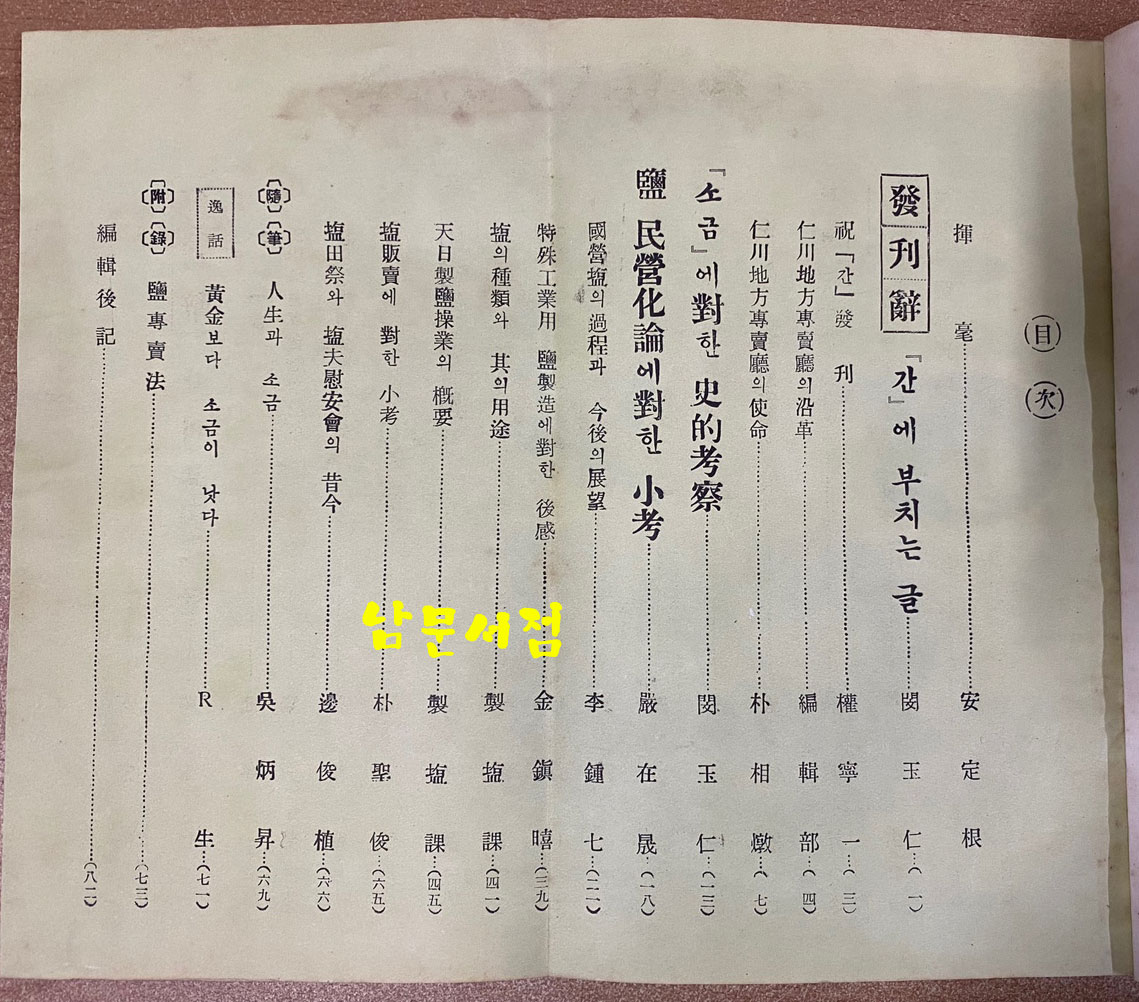 (目)(次)
揮毫 安定根
發刊辭 『간』에 부치는 글 閔玉仁 (一)
祝『간』發刊 權寧一 (三)
仁川地方專賣廳의沿革 編輯部 (四)
仁川地方專賣廳의使命 朴相燉 (七)
『소금』에對한 史的考察 閔玉仁 (一三)
鹽 民營化論에對한 小考 嚴在晟 (一八)
國營塩의過程과 今後의展望 李鍾七 (二一)
特殊工業用 鹽製造에對한 後感 金鎭暿 (三九)
塩의種類와 其의用途 製塩課 (四一)
天日製鹽操業의 槪要 製塩課 (四五)
塩販賣에 對한 小考 朴聖俊 (六五)
塩田祭와 塩夫慰安會의 昔今 邊俊植 (六六)
(隨)(筆) 人生과 소금 吳炳昇 (六九)
逸話 黃金보다 소금이 낫다 R生 (七一)
(附)(錄) 鹽專賣法 (七三)
編輯後記 (八二)
남문서점